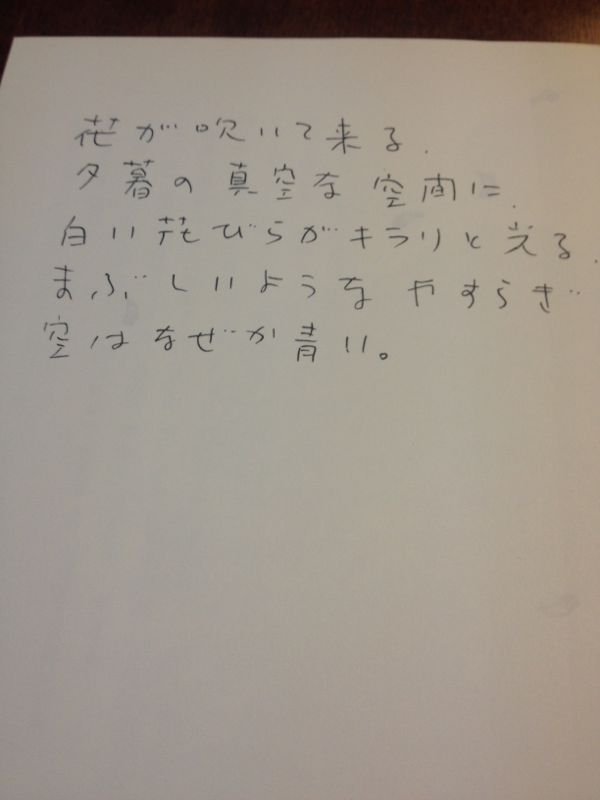 花が吹いて来る.
夕暮の真空な空間に.
白い花びらがキラリと光る.
まぶしいようなやすらぎ
空はなぜか青い。